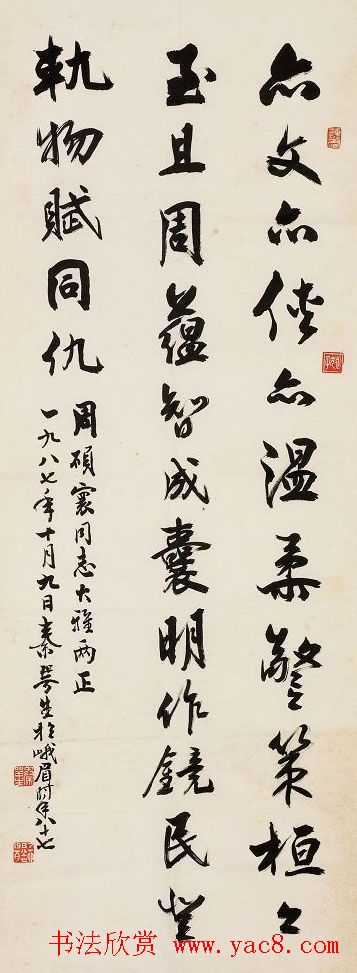 亦文亦俠亦温柔警策桓々
至且周蘊智成囊明作鏡民登
軌物賦同仇
周碩寰同志大雅两正
一九八七年十月九日秦萼生於峨眉时年八十七
书法欣赏 www.yac8.com